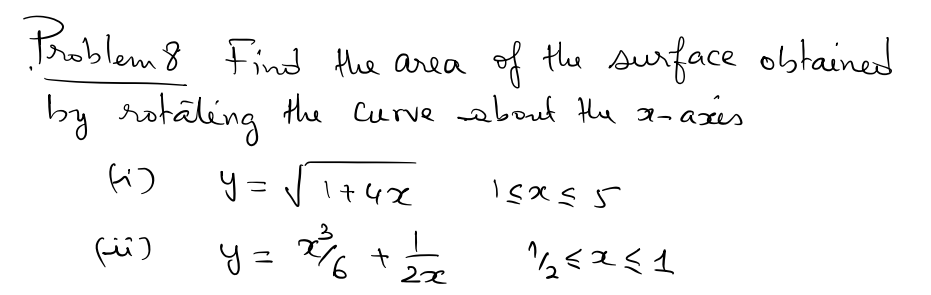 Problem 8 Find the area of the surface obtained
by rotating the curve about the x-axis
(i) y = √(1+4x) 1 ≤ x ≤ 5
(ii) y = x³/6 + 1/2x 1/2 ≤ x ≤ 1